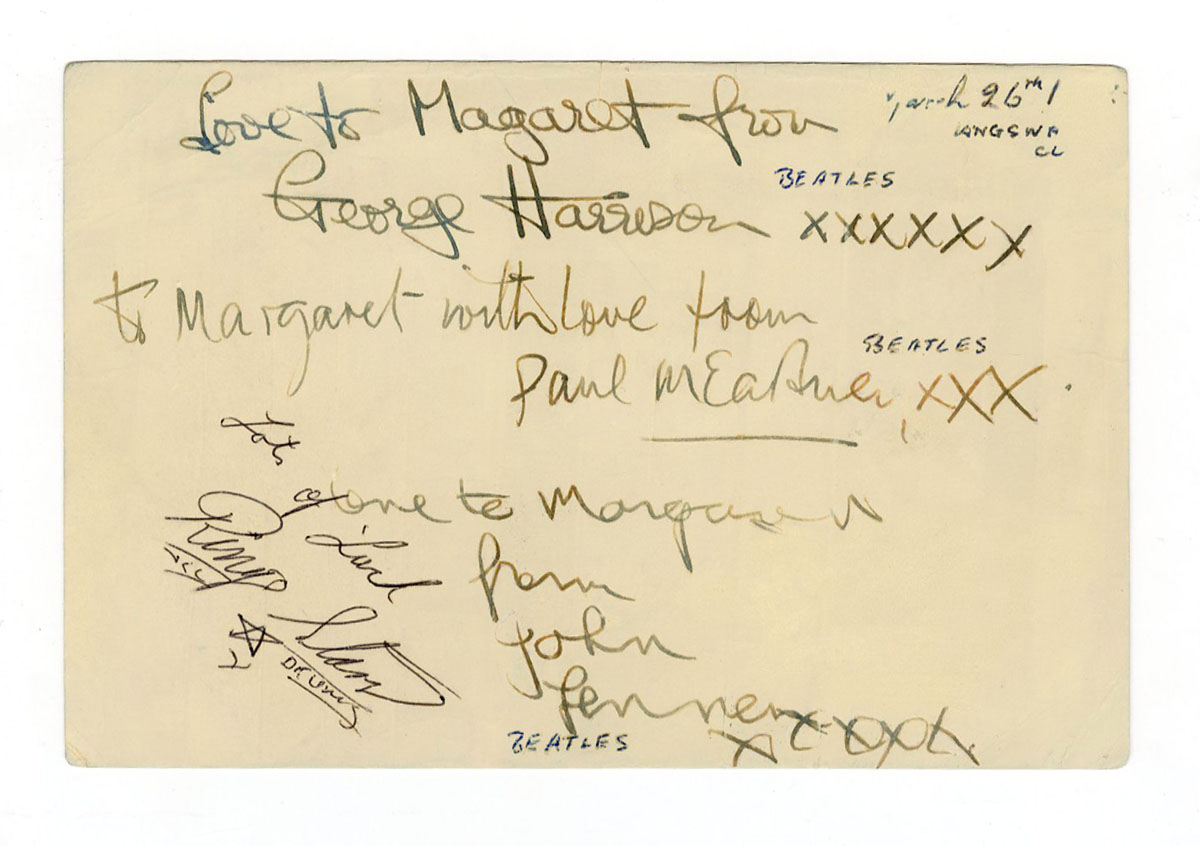 Love to Magaret from
George Harrison xxxxxx
BEATLES
March 26th
to Margaret with love from
Paul McCartney xxx
BEATLES
love to Margaret
from
John
Lennon xxxxx
BEATLES
Lots
of
Luck
Ringo
Starr